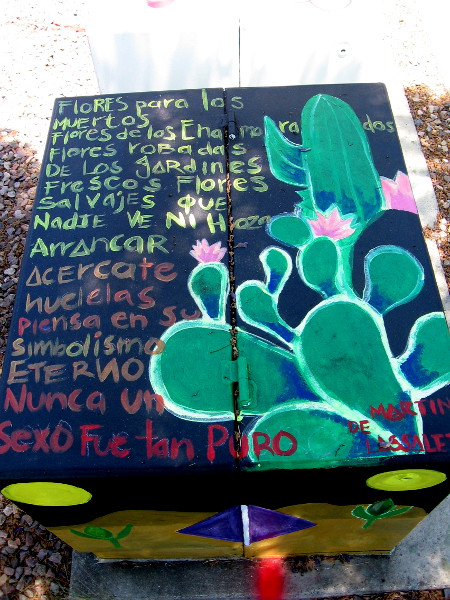 FLORES para los
MUERTOS
Flores de las Enamorados
Flores robadas
DE LOS JARDINES
Frescos Flores
SALVAJES QUE
NADIE VE Ni Hoza
ARRANCAR
ACERCATE
huelelas
piensa en su
simbolismo
ETERNO
Nunca un
Sexo Fue tan PURO
MARTIN
DE LASSALET